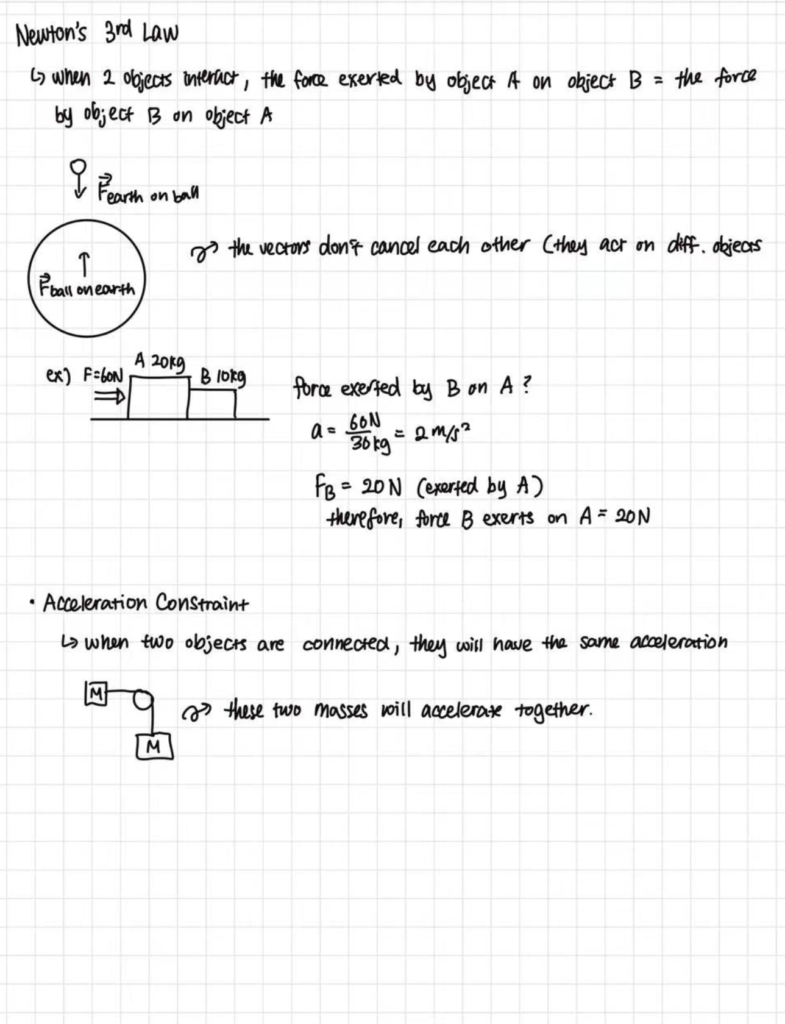 Newton's 3rd Law
↳ when 2 objects interact, the force exerted by object A on object B = the force
by object B on object A
F⃗earth on ball
F⃗ball on earth
↝ the vectors don't cancel each other (they act on diff. objects
ex) F=60N A 20kg B 10kg
force exerted by B on A?
a = 60N/30kg = 2 m/s²
FB = 20N (exerted by A)
therefore, force B exerts on A = 20N
• Acceleration Constraint
↳ when two objects are connected, they will have the same acceleration
M
↝ these two masses will accelerate together.
M